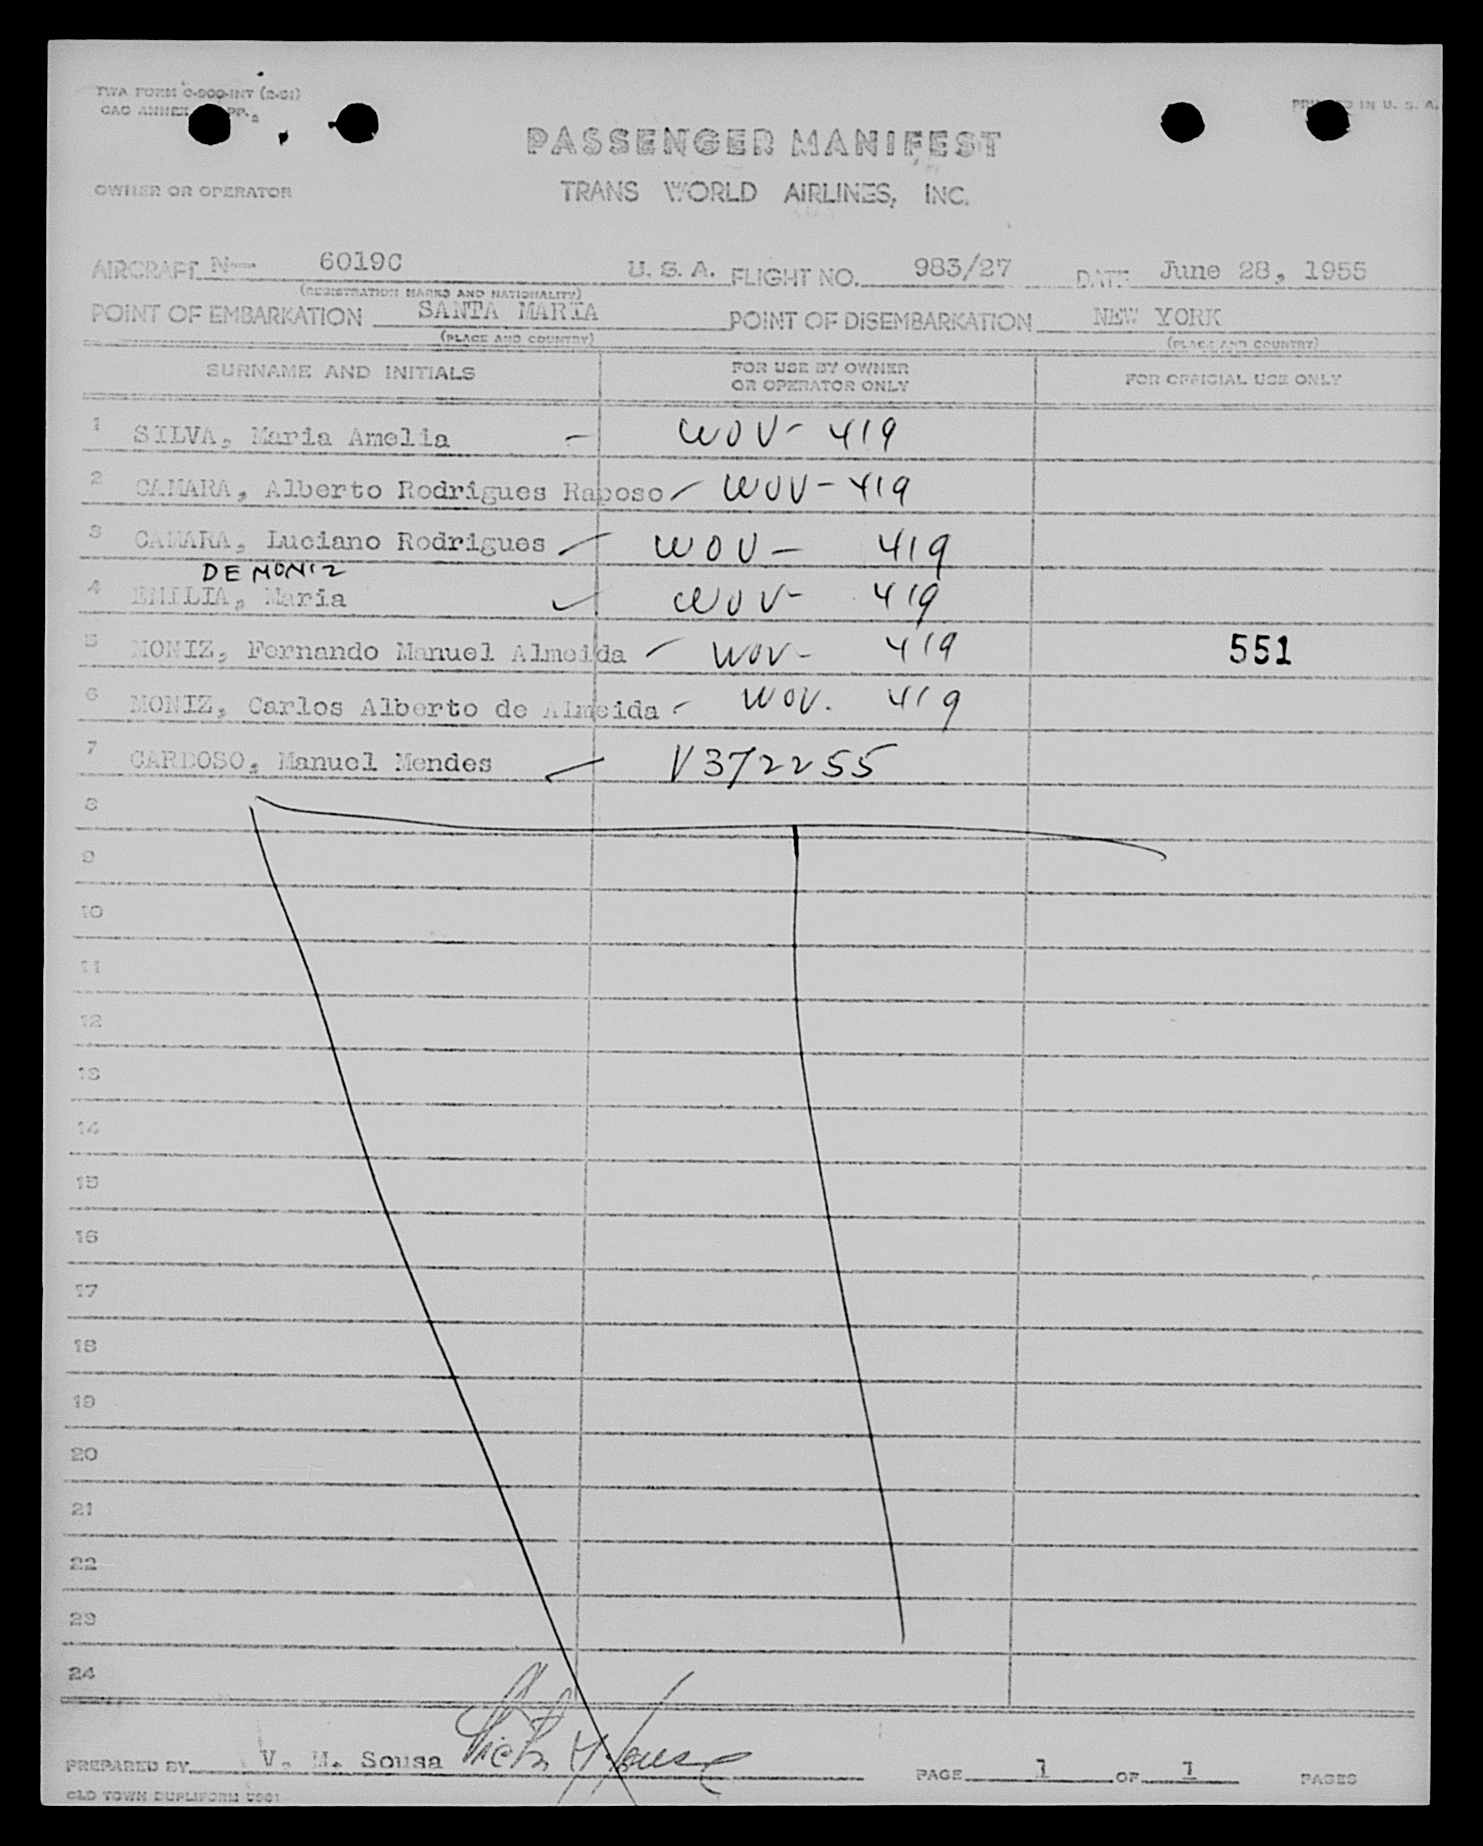 TWA FORM C-900-INT (2-51)
CAO ANNEX PP.
IN U. S. A.
PASSENGER MANIFEST
OWNER OR OPERATOR TRANS WORLD AIRLINES, INC.
AIRCRAFT N— 6019C U. S. A. FLIGHT NO. 983/27 DATE June 28, 1955
(REGISTRATION MARKS AND NATIONALITY)
POINT OF EMBARKATION SANTA MARIA POINT OF DISEMBARKATION NEW YORK
(PLACE AND COUNTRY) (PLACE AND COUNTRY)
SURNAME AND INITIALS FOR USE BY OWNER OR OPERATOR ONLY FOR OFFICIAL USE ONLY
1 SILVA, Maria Amelia - WOV- 419
2 CAMARA, Alberto Rodrigues Raposo WOV-419
3 CAMARA, Luciano Rodrigues WOV- 419
DE MONIZ
4 EMILIA, Maria WOV- 419
5 MONIZ, Fernando Manuel Almeida WOV- 419 551
6 MONIZ, Carlos Alberto de Almeida WOV. 419
7 CARDOSO, Manuel Mendes V372255
8
9
10
11
12
13
14
15
16
17
18
19
20
21
22
23
24
PREPARED BY V. M. Sousa PAGE 1 OF 1 PAGES
OLD TOWN DUPLIFORM